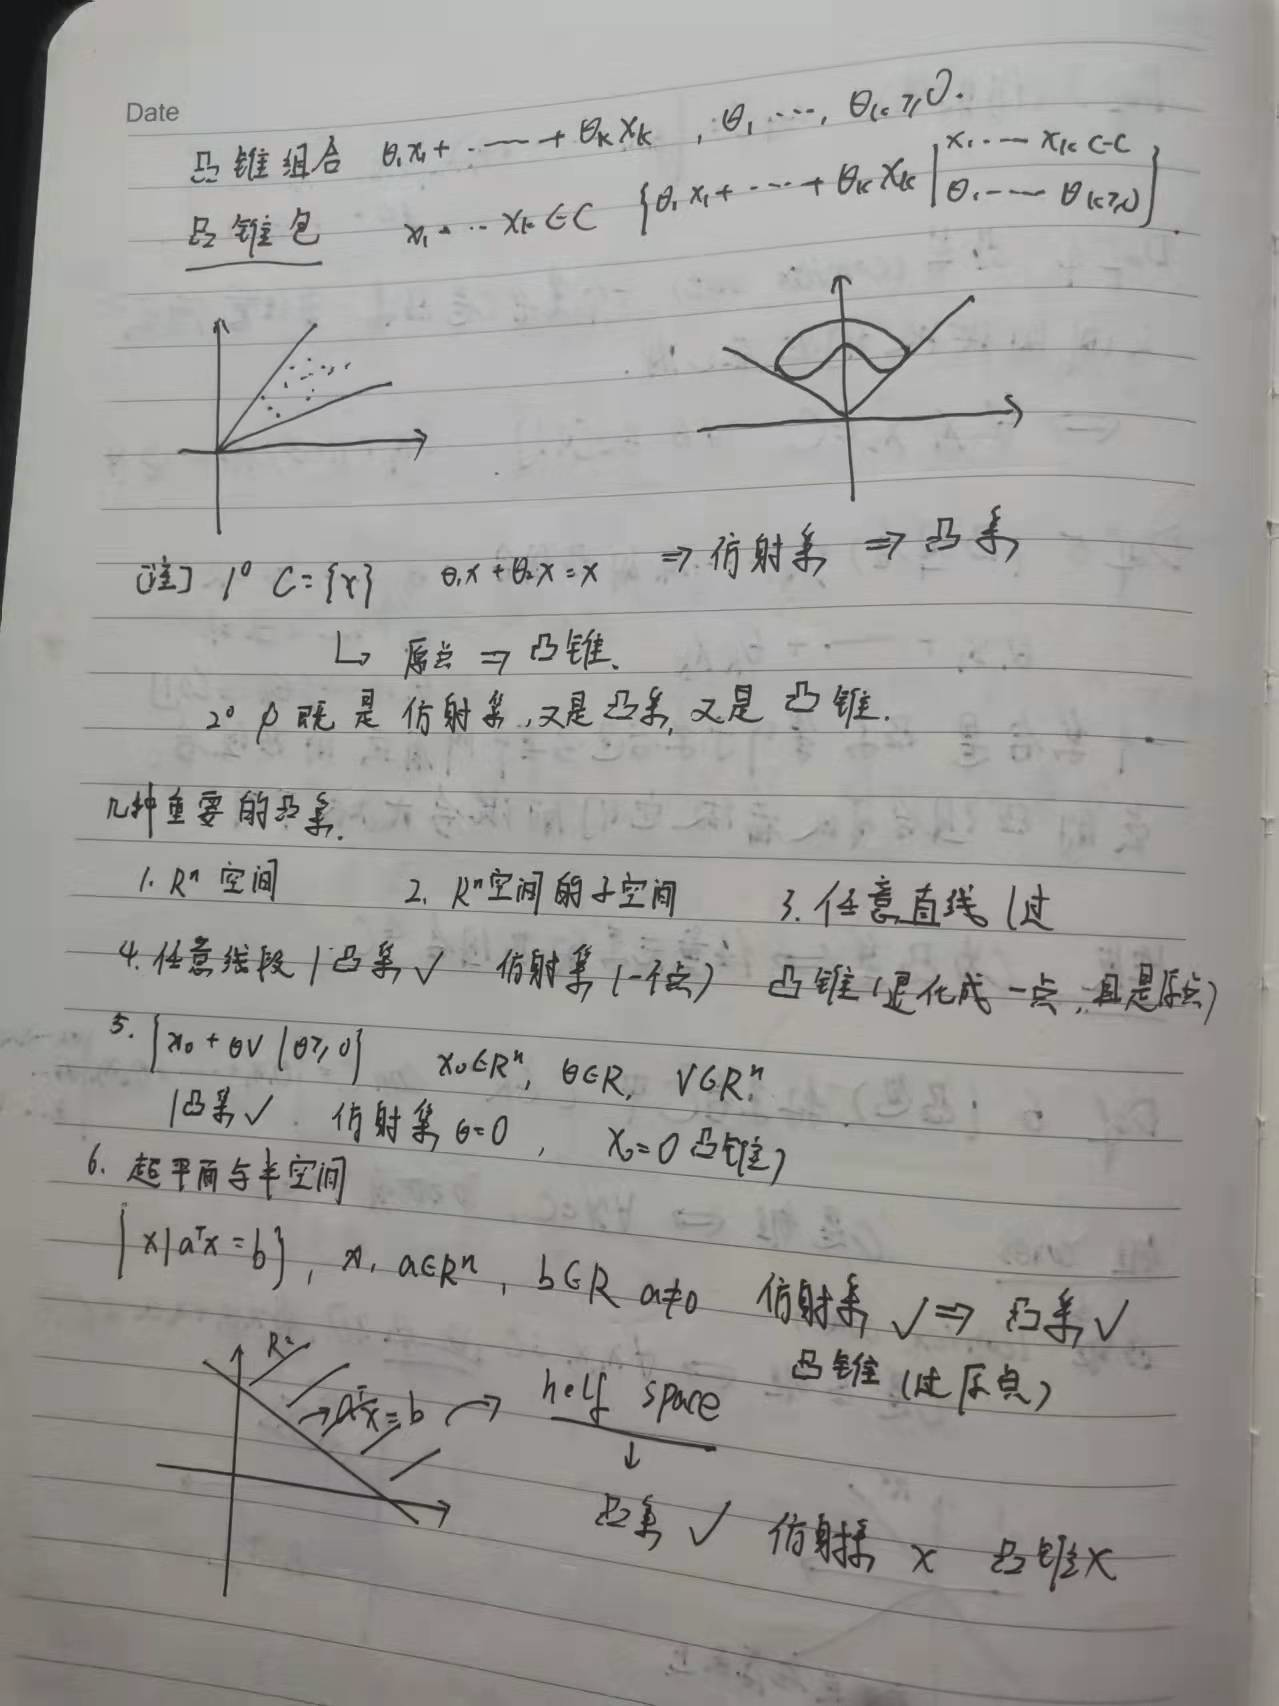 Date
凸锥组合 θ₁x₁+……+θₖxₖ , θ₁ …, θₖ≥0.
凸锥包 x₁…xₖ∈C {θ₁x₁+…+θₖxₖ | x₁…xₖ∈C θ₁…θₖ≥0}.
[注] 1° C={x} θ₁x+θ₂x=x ⇒ 仿射集 ⇒ 凸集
↳ 原点 ⇒ 凸锥.
2° ∅既是仿射集,又是凸集,又是凸锥.
几种重要的凸集.
1. Rⁿ空间 2. Rⁿ空间的子空间 3. 任意直线 (过
4. 任意线段 (凸集✓ 仿射集(一个点) 凸锥(退化成一点,且是原点)
5. {x₀+θv | θ≥0} x₀∈Rⁿ, θ∈R, V∈Rⁿ.
(凸集✓ 仿射集 θ=0 , x₀=0 凸锥)
6. 超平面与半空间
{x|aᵀx=b}, x, a∈Rⁿ, b∈R a≠0 仿射集✓⇒ 凸集✓
凸锥 (过原点)
R²
→aᵀx=b → helf space
↓
凸集 ✓ 仿射集 × 凸锥×